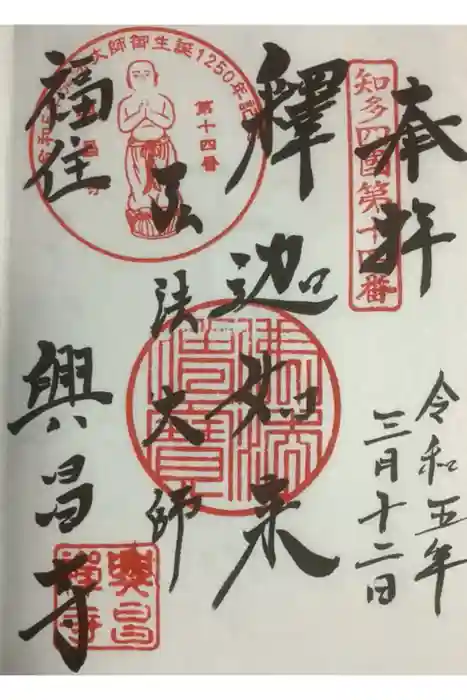 奉拝
知多四國第十四番
令和五年
三月十二日
釋迦如来
弘法大師
大師御生誕1250年記
第十四番
佛法僧寶
福住
興昌寺
興昌禅寺